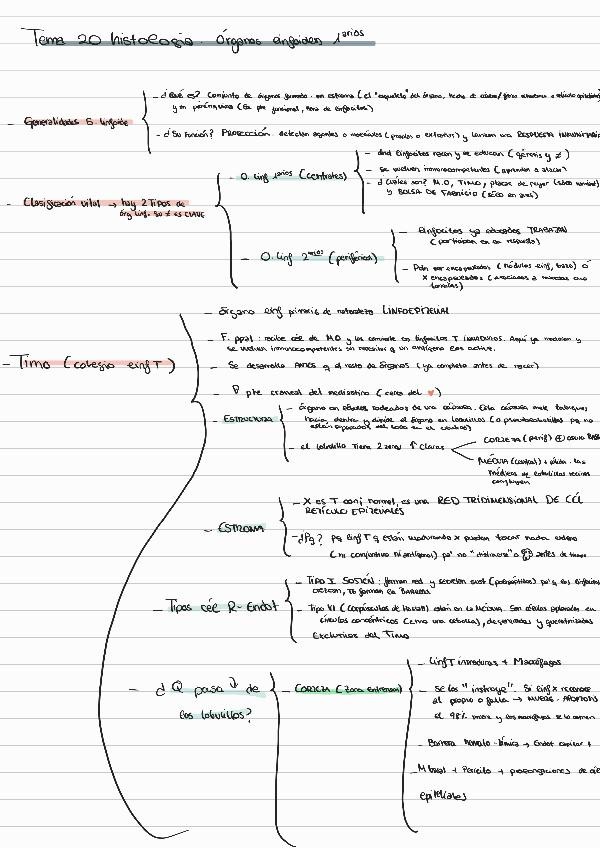 Tema 20 histología. Órganos linfoides 1arios
- ¿Qué es? Conjunto de órganos formado por un estroma (el "esqueleto" del órgano, hecho de
y un parénquima (la pte funcional, llena de linfocitos)
- Generalidades S. linfoide
- ¿Su Función? PROTECCIÓN. detectan agentes o moléculas (propias o externas) y lanzan una RESPUESTA
- dnd linfocitos nacen y se educan (génesis y ≠)
- O. linf 1arios (centrales)
- se vuelven inmunocompetentes (aprenden a atacar)
- ¿Cuáles son? M.O, TIMO, placas de peyer
y BOLSA DE FABRICIO (sólo en aves)
- Clasificación vital → hay 2 Tipos de
órg linf. Su ≠ es CLAVE
- linfocitos ya educados TRABAJAN
(participan en la respuesta)
- O. linf 2arios (periféricos)
- Pdn ser encapsulados (nódulos linf, bazo) ó
X encapsulados (asociados a mucosas
- órgano linf primario de naturaleza LINFOEPITELIAL
- F. ppal: recibe cél de MO y las convierte en linfocitos T INMADUROS. Aquí ya maduran y
se vuelven inmunocompetentes sin necesitar q un antígeno los active.
- Timo (colegio linf T)
- Se desarrolla ANTES q el resto de órganos (ya completo antes de nacer)
pte craneal del mediastino (cerca del ♥)
- órgano en lóbulos rodeados de una cápsula. Esta cápsula mete tabiques
- ESTRUCTURA
hacia dentro y divide el órgano en lobulillos (o pseudolobulillos pq no
están separados del todo en el centro)
- el lobulillo tiene 2 zonas ↑ Claras
CORTEZA (perif) ⊕ oscura
MÉDULA (central) + pálida. las
médulas de lobulillos vecinos
- X es T conj normal, es una RED TRIDIMENSIONAL DE CÉL
RETÍCULO EPITELIALES
- ESTROMA
- ¿Pq? pq linf T q están madurando x pueden tocar nada extero
(ni conjuntivo ni antígenos) pa' no "chivarse" o antes de tiempo
- TIPO I. SOSTÉN: forman red y secretan sust
- Tipos cél R-Endot
- Tipo VI (Corpúsculos de Hassall) están en la MÉDULA. Son células aplanadas en
círculos concéntricos (como una cebolla), degeneradas y queratinizadas
Exclusivos del Timo
- Linf T inmaduros + Macrófagos
- ¿Q pasa ↓ de
los lobulillos?
- CORTEZA (Zona entrenam)
- se les "instruye". Si linf x reconoce
al propio o falla → MUERE. APOPTOSIS
el 98% muere y los macrófagos se lo comen
- Barrera hemato-tímica → Endot capilar +
M basal + Pericito + prolongaciones de
epiteliales